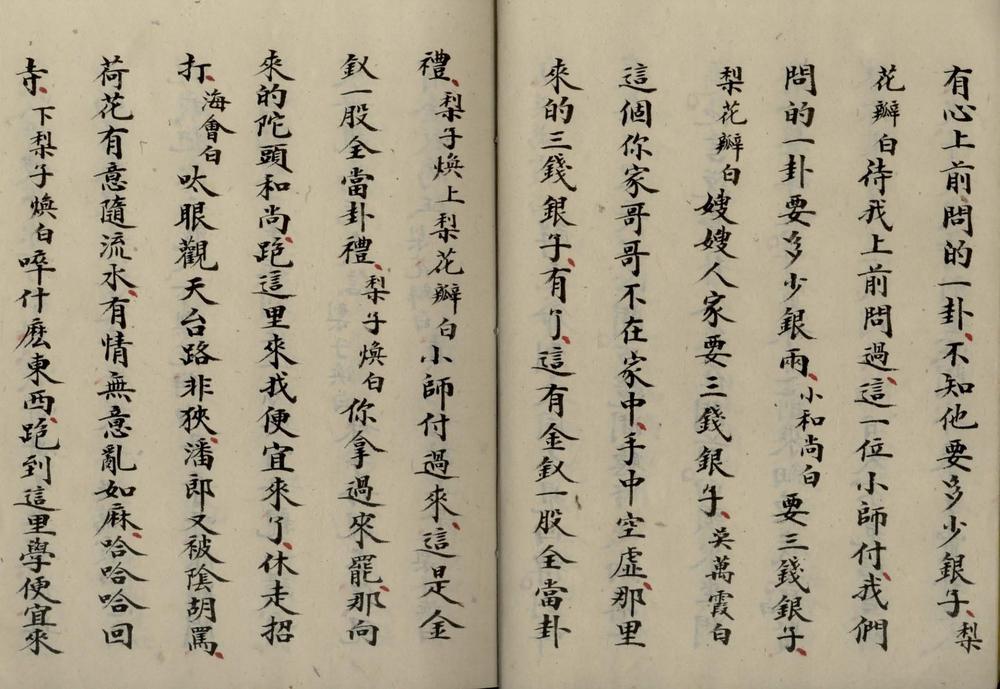 有心上前、問的一卦、不知他要多少銀子、梨
花瓣白待我上前問過、這一位小師付、我們
問的一卦要多少銀兩、小和尚白要三錢銀子、
梨花瓣白嫂嫂人家要三錢銀子、吳萬霞白
這個你家哥哥不在家中、手中空虛、那里
來的三錢銀子、有了、這有金釵一股全當卦
禮、梨子煥上梨花瓣白小師付過來、這是金
釵一股全當卦禮、梨子煥白你拿過來罷、那向
來的陀頭和尚、跑這里來我便宜來了、休走招
打、海會白呔眼觀天台路非狹、潘郎又被陰胡罵、
荷花有意隨流水、有情無意亂如麻、哈哈哈回
寺、下梨子煥白啐什麽東西、跑到這里學便宜來